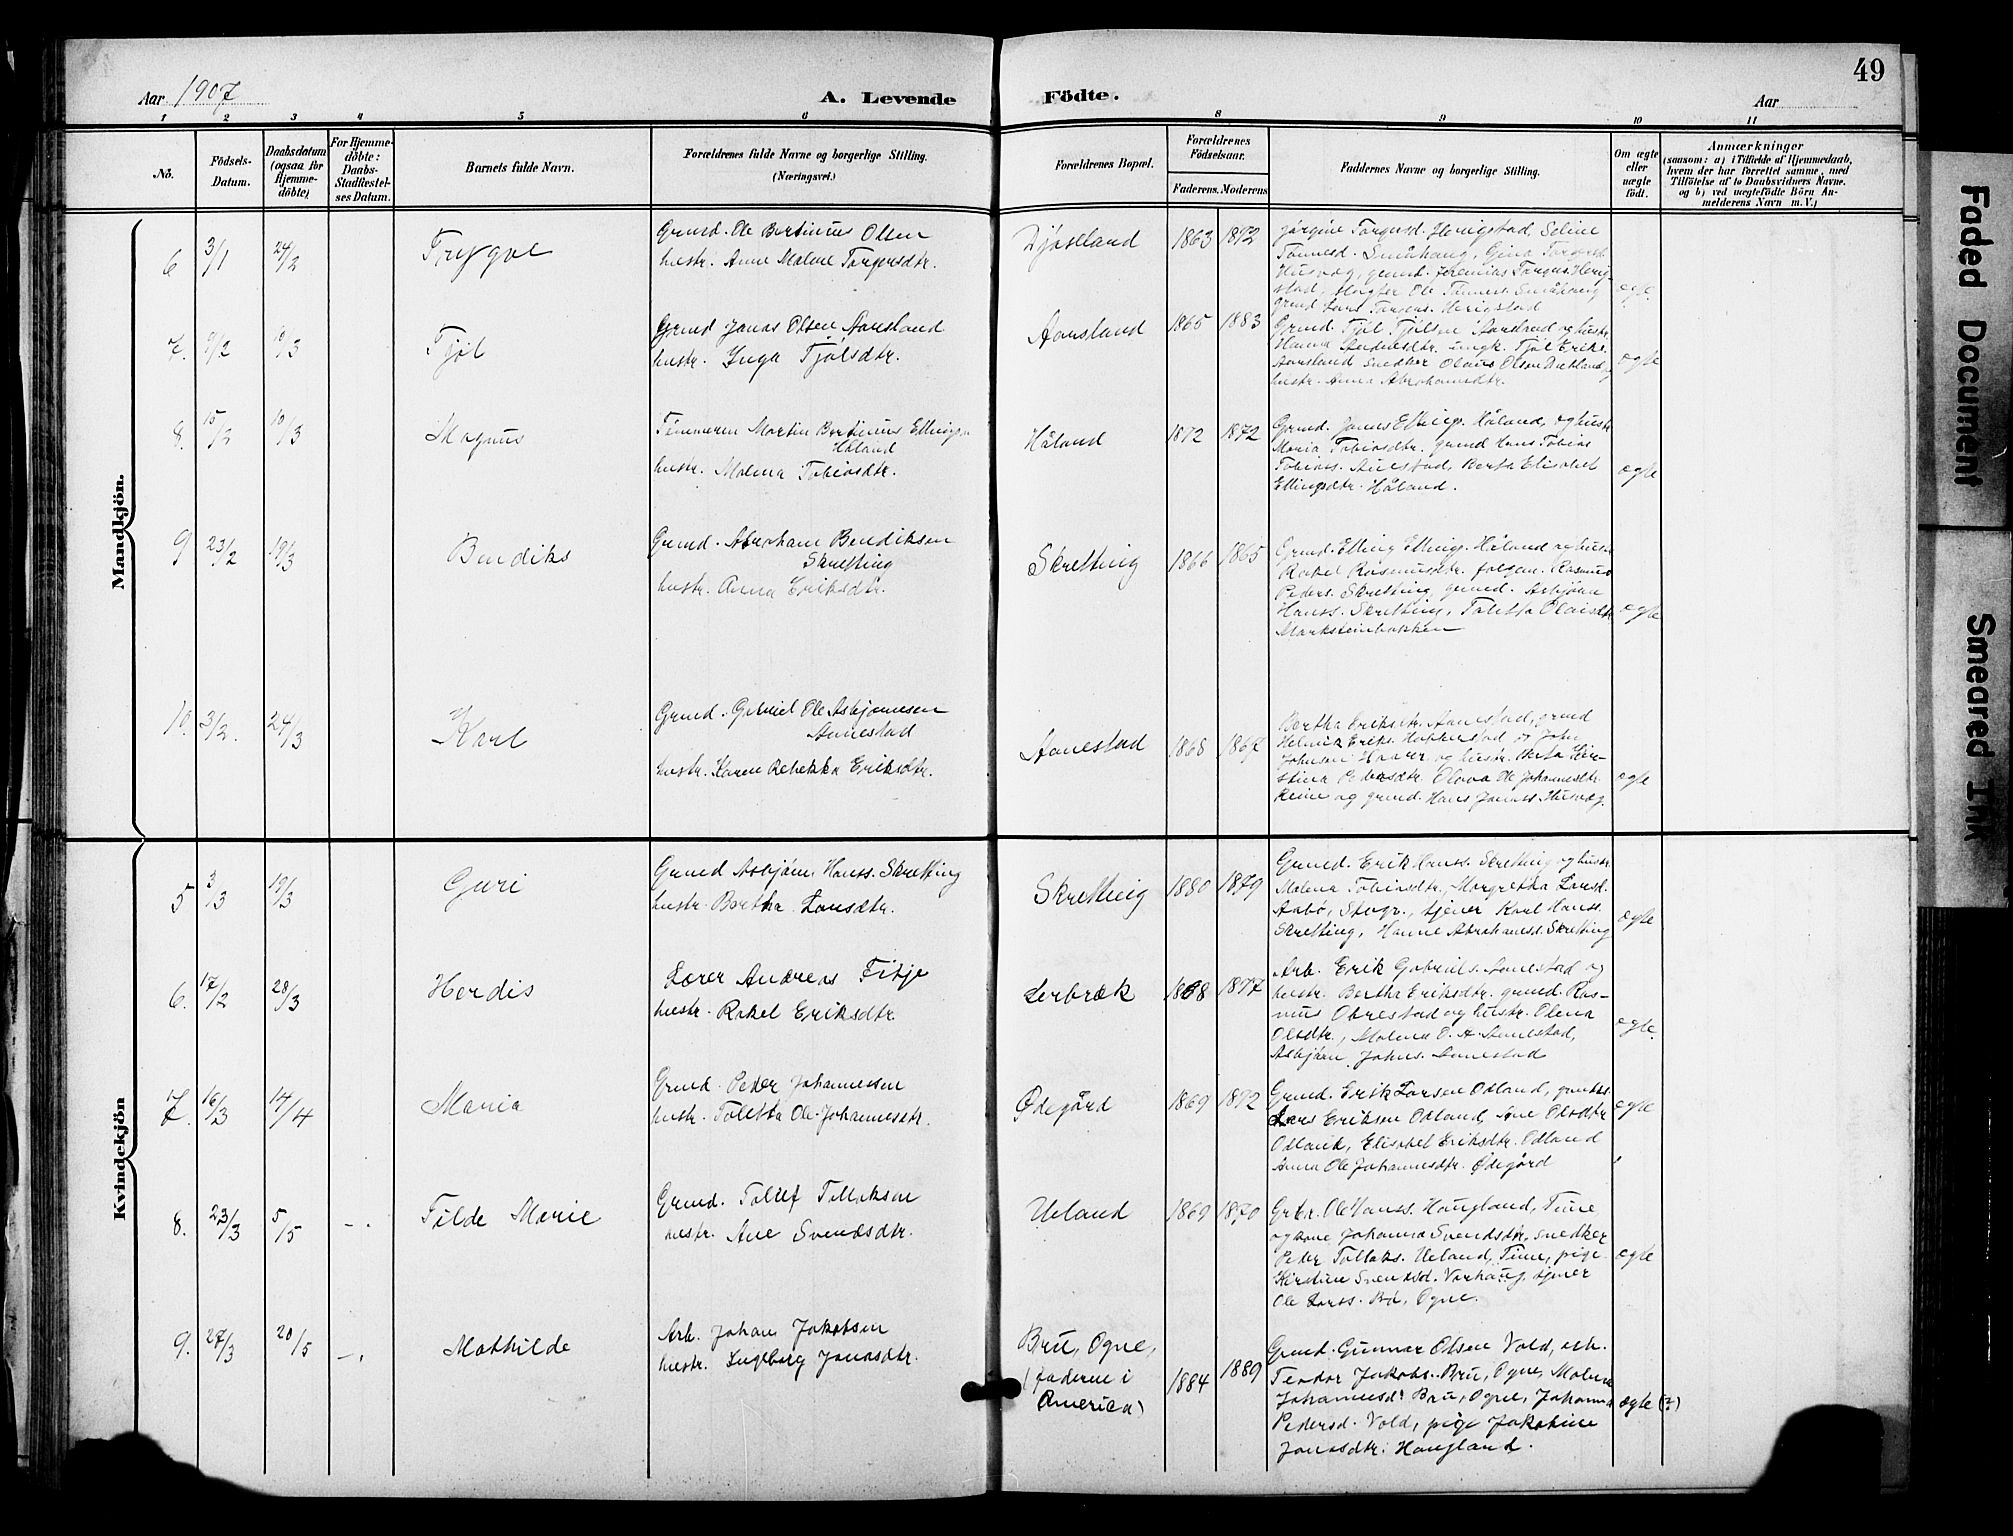 49
Aar 1907
A. Levende Födte.
Aar
1 2 3 4 5 6 8 9 10 11
Nö.
Födsels-Datum.
Daabsdatum (ogsaa for Hjemme-döbte)
For Hjemme-döbte: Daabs-Stadfæstel-ses Datum.
Barnets fulde Navn.
Forældrenes fulde Navne og borgerlige Stilling. (Næringsvei.)
Forældrenes Bopæl.
Forældrenes Födselsaar.
Faderens. Moderens
Faddernes Navne og borgerlige Stilling.
Om ægte eller uægte födt.
Anmærkninger
(saasom: a) i Tilfælde af Hjemmedaab,
hvem der har forrettet samme, med
Tilföielse af to Daabsvidners Navne.
og b) ved uægtefödte Börn An-
melderens Navn m. V.)
Mandkjön.
6 3/1 24/2 Trygve
Grmd. Ole Bertinius Olsen
hustr. Anne Malene Torgersdtr.
1863 1872
Jørgine Torgersd. Herigstad, Seline
Tønnesd. Småhaug, Gina Torgersd.
Husvæg, grmd. Jeremias Torgers. Herig-
stad, Ole Tønness. Småhaug
grmd Lars Torgers. Herigstad
ægte
7. 9/2 10/3 Tjøl
Grmd Jonas Olsen Aarsland
hustr. Inga Tjølsdtr.
Aarsland 1865 1883
Grmd. Tjøl Tjølsen Aarsland og hustr.
Hanna ungk. Tjøl Eriks.
Aarsland Snedker Olaus Olsen
hustr. Anna Abrahamsdtr.
ægte
8. 15/2 10/3 Magnus
Tømmerm Martin Bertinius Ellingsen
Håland
hustr. Malena Tobiasdtr.
Håland 1872 1872
Grmd. Jonas Ellings. Håland, og hustr
Maria Tobiasdtr. grmd Hans Tobias
Tobiass. Auestad, Berta Elisabet
Ellingsdtr. Håland.
ægte
9 23/2 19/3 Bendiks
Grmd. Abraham Bendiksen
Skretting
hustr. Anna Eriksdtr.
Skretting 1866 1865
Grmd. Elling Ellings. Håland og hustr
Rakel Rasmusdtr. Rasmus
Peders. Skretting, grmd. Asbjørn
Hanss. Skretting, Toletta Olaisdtr
Marksteinbakken
ægte
10. 3/2. 24/3 Karl
Grmd. Gabriel Ole Asbjørnsen
Aanestad
hustr. Karen Rebekka Eriksdtr.
Aanestad 1868 1867
Bertha Eriksdtr. Aanestad, grmd
Henrik Eriks. og John
Johnsen Haarr og hustr. Berta Kir-
stina Pedersdtr. Olava Ole Johannesdtr.
Reime og grmd. Hans Jonass. Husvæg.
ægte
Kvindekjön
5 3/3 19/3 Guri
Grmd Asbjørn Hanss. Skretting
hustr. Bertha Larsdtr.
Skretting 1880 1879
Grmd. Erik Hanss. Skretting og hustr
Malena Tobiasdtr., Margretha Larsd.
Aabø, Stvgr., tjener Karl Hanss.
Skretting, Hanne Abrahamsd. Skretting
ægte
6. 17/2 20/3 Herdis
Lærer Andreas Fitje
hustr. Rakel Eriksdtr
Lerbræk 1868 1877
Arb. Erik Gabriels. Aanestad og
hustr. Bertha Eriksdtr. grmd. Ras-
mus Obrestad og hustr. Olena
Olsdtr., Malena O. A. Aanestad,
Asbjørn Johns. Aanestad
ægte.
7. 16/3 14/4 Maria
Grmd. Peder Johannessen
hustr. Toletta Ole Johannesdtr.
Ødegård 1869 1872
Grmd. Erik Larsen Odland,
Lars Eriksen Odland, Ane Olsdtr
Odland, Elisabet Eriksdtr. Odland
Anna Ole Johannesdtr. Ødegård
ægte
8. 23/3 5/5 -. Tilde Marie
Grmd. Tollef Tollaksen
hustr. Ane Svendsdtr.
Ueland 1869 1870
Grbr. Ole Hanss. Haugland, Time,
og kone Johanna Svendsdtr, snedker
Peder Tollaks. Ueland, Time, pige
Kirstine Svendsd. Varhaug, tjener
Ole Larss. Bø, Ogne.
ægte
9. 27/3 20/5 -. Mathilde
Arb. Johan Jakobsen
hustr. Ingeborg Jonasdtr.
Bru, Ogne,
(faderen i
America)
1884 1889
Grmd. Gunnar Olsen Vold, arb.
Teodor Jakobs. Bru, Ogne, Malena
Johannesd. Bru, Ogne, Johanna
Pedersd. Vold, pige Jakobine
Jonasdtr. Haugland.
ægte (?)
Faded Document
Smeared Ink